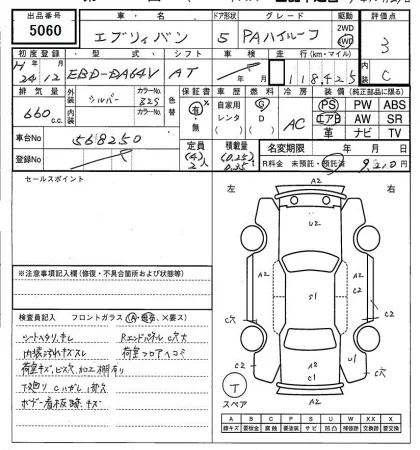 出品番号 車・名 ドア形状 グレード 駆動 評価点
5060 エブリィバン 5 PAハイルーフ 2WD 4WD 3
初度登録 型式 シフト 車検 走行(km・マイル) 内装
H 24 12 EBD-DA64V AT 年 月 118,425 C
排気量 外装 シルバー カラーNo. 色替 保証書 車歴 燃料 冷房 装備(純正部品に限る)
660 c.c. 内装 カラーNo. 有・無 自家用 レンタ G D AC PS PW ABS
エアB AW SR
革 ナビ TV
車台No 568250 定員 (4) 2人 積載量 (0.25) 0.35t
登録No 名変期限 年 月 日
R料金 未預托・預託済
セールスポイント
左 右
A2
U2
A2 A2
C2
A2 S1
C穴 C2
A2
U1
A2 C1 C穴
A2
T
スペア
※注意事項記入欄(修復・不具合箇所および状態等)
検査員記入 フロントガラス(A・飛石、×要ス)
シートヘタリ、キレ Rエンドパネル C穴大
内張 キズスレ 荷室フロアヘコミ
荷室キズ、ビス穴、加工、棚有り
下廻り Cハガレ
ボデー看板跡 キズ
A B C P S U W XX X
線キズ 要板金 腐蝕 要塗装 サビ 凹凸 補修跡 交換 要交換